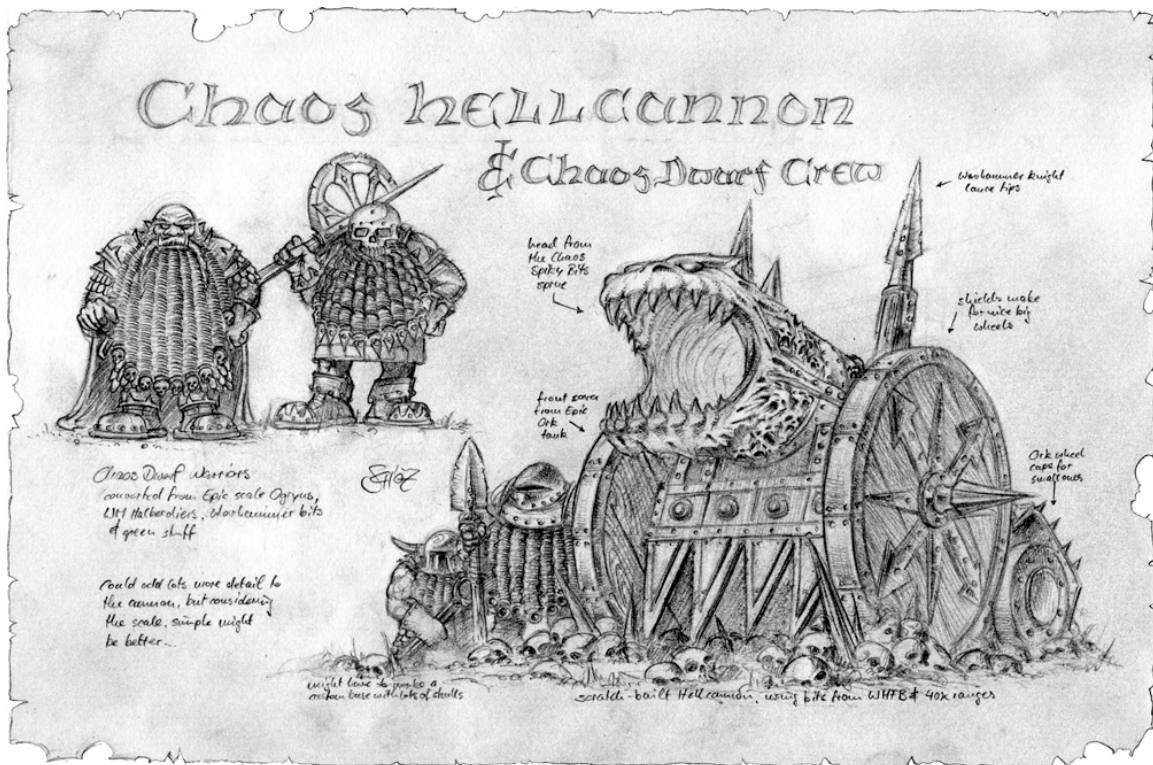 Chaos Hellcannon
& Chaos Dwarf Crew
Warhammer Knight
lance tips
head from
the Chaos
Spiky Bits
sprue
shields make
for nice big
wheels
front cover
from Epic
Ork
tank
Ork wheel
caps for
small ones
Chaos Dwarf Warriors
converted from Epic scale Ogryns,
WM Halberdiers, Warhammer bits
& green stuff
Could add lots more detail to
the cannon, but considering
the scale, simple might
be better...
might have to make a
custom base with lots of skulls
scratch-built Hellcannon, using bits from WHFB & 40K ranges